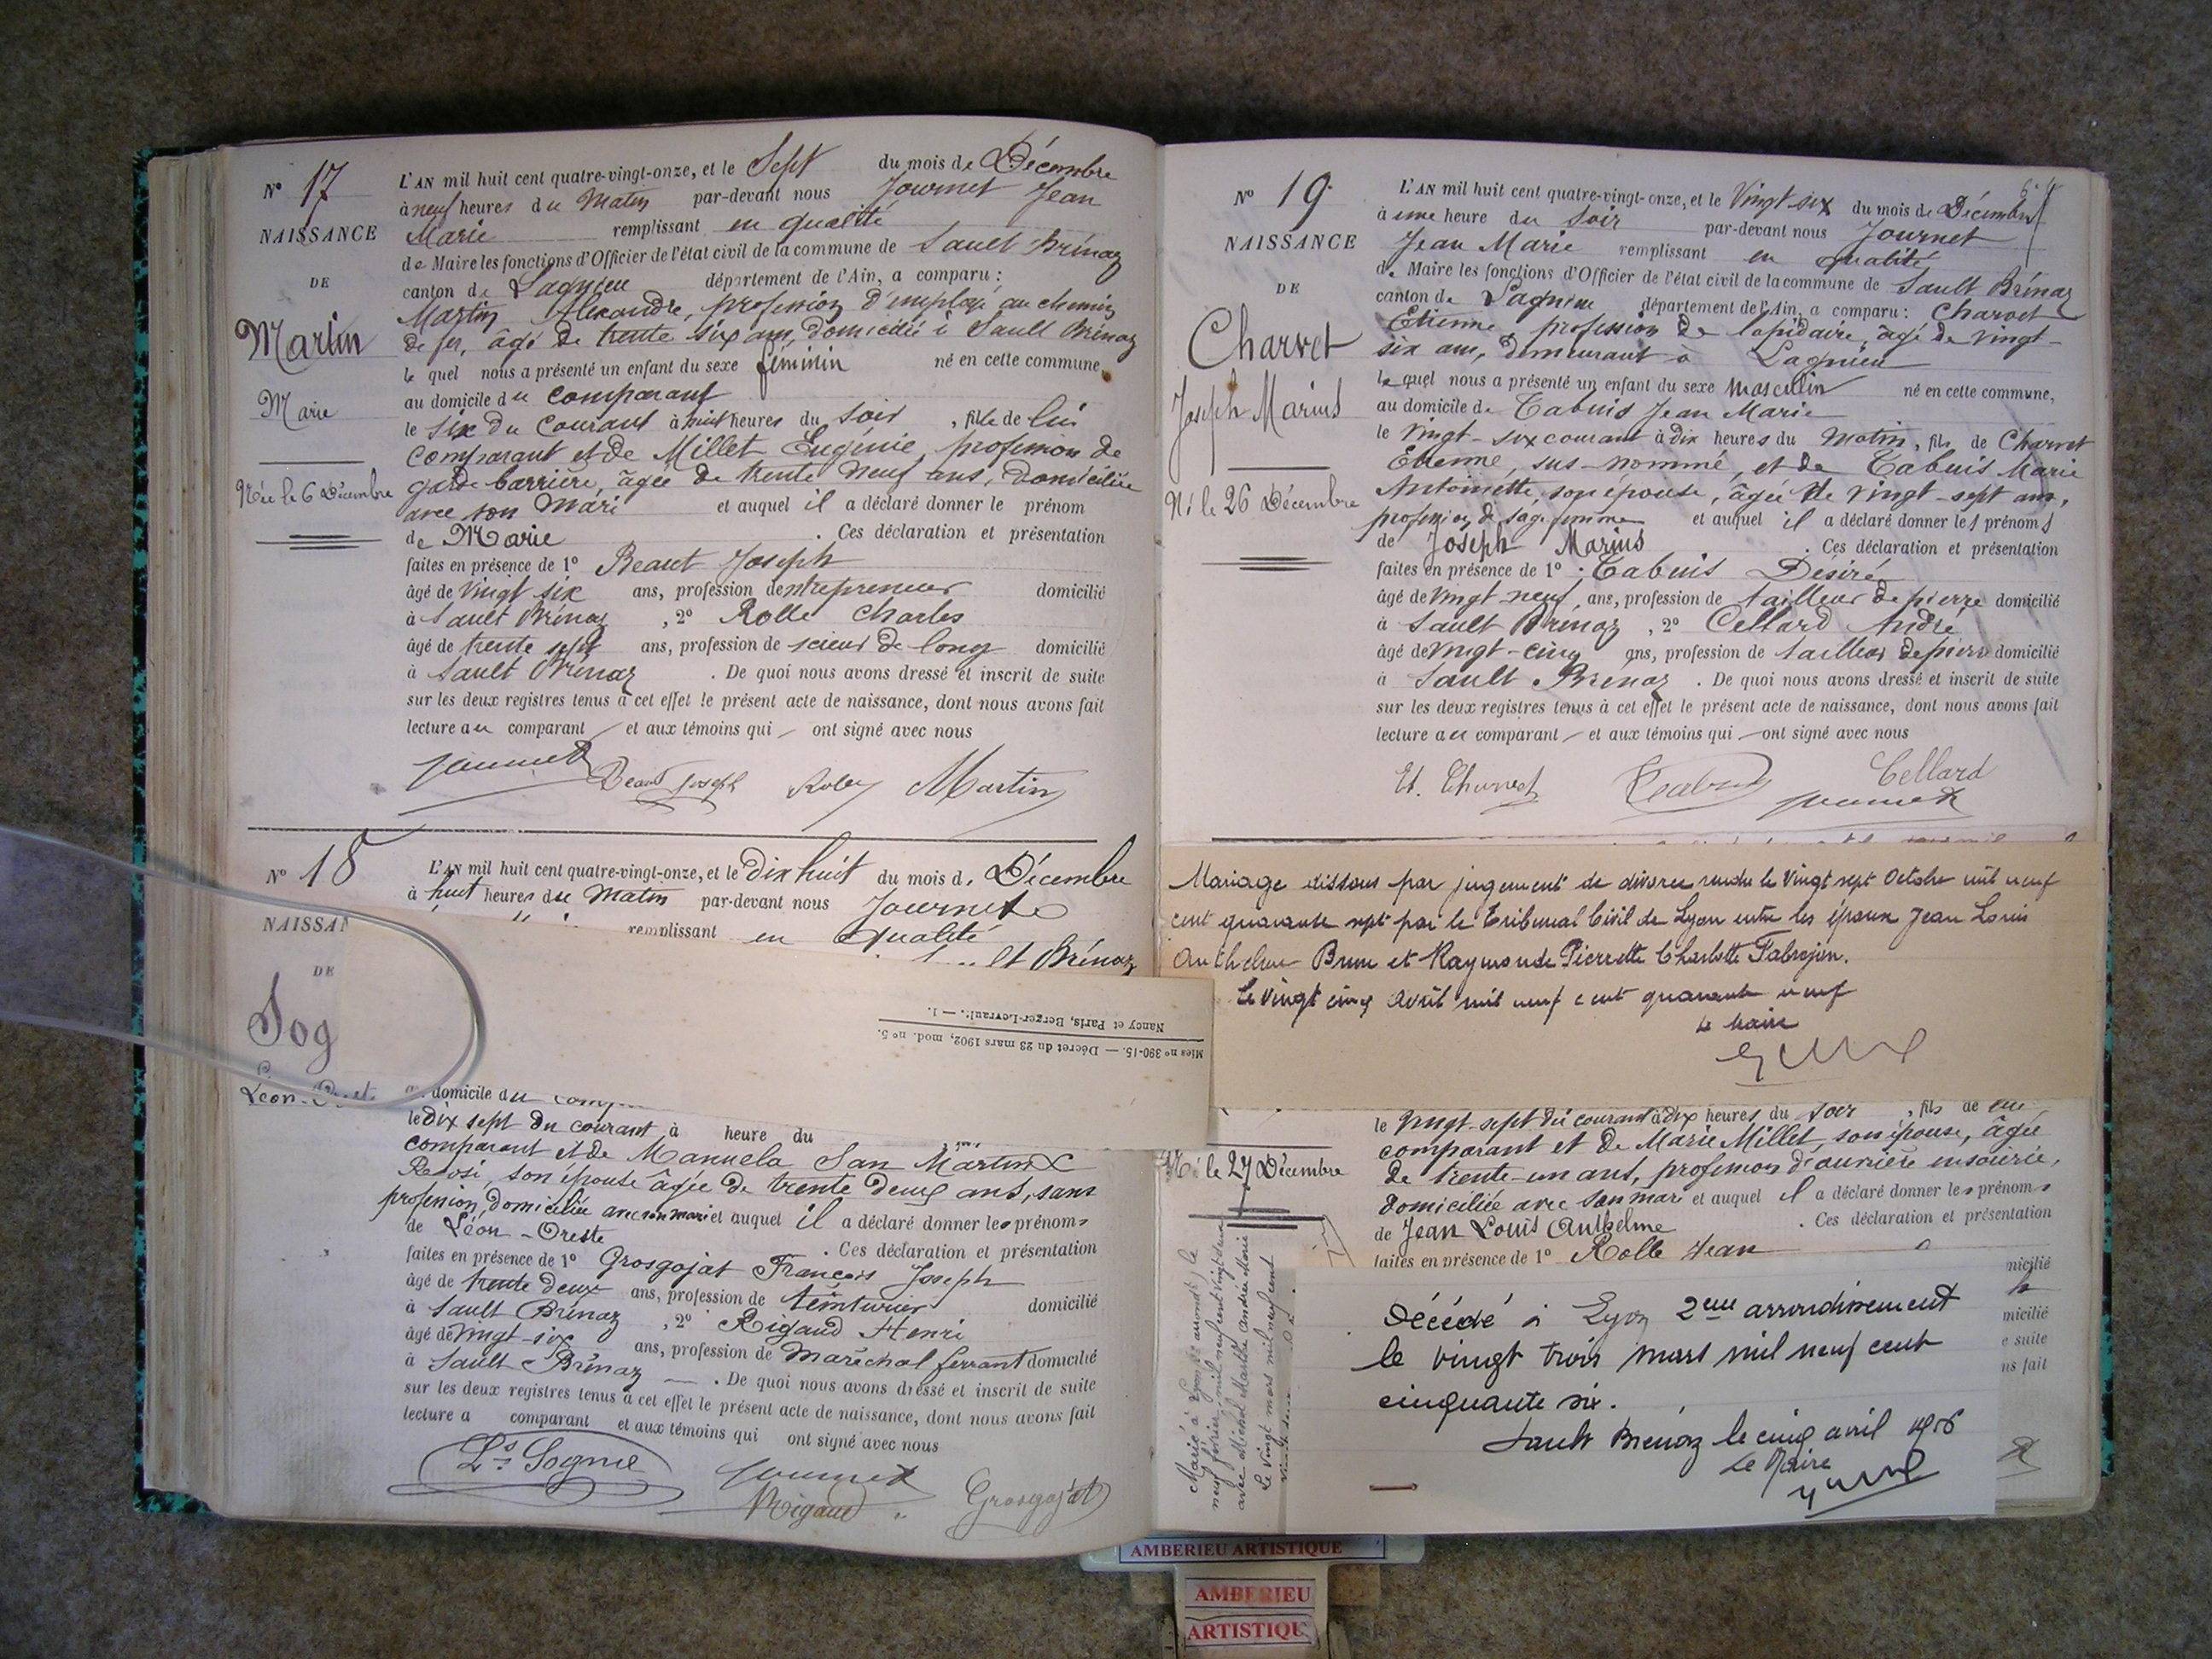 N° 17
NAISSANCE
DE
Martin
Marie
Née le 6 Décembre
L'AN mil huit cent quatre-vingt-onze, et le Sept du mois de Décembre
à neuf heures du Matin par-devant nous Journet Jean
Marie remplissant en qualité
de Maire les fonctions d'Officier de l'état civil de la commune de Sault Brénaz
canton de Lagnieu département de l'Ain, a comparu :
Martin Alexandre, profession d'employé au chemin
de fer, âgé de trente six ans, domicilié à Sault Brénaz
le quel nous a présenté un enfant du sexe féminin né en cette commune,
au domicile du comparant
le six du courant à huit heures du soir, fille de lui
comparant et de Millet Eugénie, profession de
garde barrière, âgée de trente neuf ans, domiciliée
avec son mari et auquel il a déclaré donner le prénom
de Marie . Ces déclaration et présentation
faites en présence de 1° Beaut Joseph
âgé de vingt six ans, profession d'entrepreneur domicilié
à Sault Brénaz , 2° Rolle Charles
âgé de trente sept ans, profession de scieur de long domicilié
à Sault Brénaz . De quoi nous avons dressé et inscrit de suite
sur les deux registres tenus à cet effet le présent acte de naissance, dont nous avons fait
lecture au comparant et aux témoins qui ont signé avec nous
Journet Beaut Joseph Martin
N° 18
NAISSAN
DE
Sog
Léon-Oreste
L'AN mil huit cent quatre-vingt-onze, et le dix huit du mois de Décembre
à huit heures du Matin par-devant nous Journet
remplissant en qualité
lt Brénaz
Nancy et Paris, Berger-Levrault. — 1.
Mles n° 390-15. — Décret du 23 mars 1902, mod. n° 5.
domicile du
le dix sept du courant à heure du
comparant et de Manuela San Martin
son épouse âgée de trente deux ans, sans
profession, domiciliée avec son mari et auquel il a déclaré donner les prénoms
de Léon-Oreste . Ces déclaration et présentation
faites en présence de 1° Grosgojat François Joseph
âgé de trente deux ans, profession de teinturier domicilié
à Sault Brénaz , 2° Rigaud Henri
âgé de vingt-six ans, profession de Maréchal ferrant domicilié
à Sault Brénaz . De quoi nous avons dressé et inscrit de suite
sur les deux registres tenus à cet effet le présent acte de naissance, dont nous avons fait
lecture a comparant et aux témoins qui ont signé avec nous
Journet
Rigaud Grosgojat
N° 19
NAISSANCE
DE
Charvet
Joseph Marius
Né le 26 Décembre
L'AN mil huit cent quatre-vingt-onze, et le Vingt-six du mois de Décembre
à une heure du soir par-devant nous Journet
Jean Marie remplissant en qualité
de Maire les fonctions d'Officier de l'état civil de la commune de Sault Brénaz
canton de Lagnieu département de l'Ain, a comparu : Charvet
Etienne, profession de lapidaire, âgé de vingt-
six ans, demeurant à Lagnieu
le quel nous a présenté un enfant du sexe masculin né en cette commune,
au domicile de Tabuis Jean Marie
le vingt-six courant à dix heures du matin, fils de Charvet
Etienne, sus-nommé, et de Tabuis Marie
Antoinette, son épouse, âgée de vingt-sept ans,
profession de sage femme et auquel il a déclaré donner les prénoms
de Joseph Marius . Ces déclaration et présentation
faites en présence de 1° Tabuis Désiré
âgé de vingt-neuf ans, profession de tailleur de pierre domicilié
à Sault Brénaz , 2° Cellard André
âgé de vingt-cinq ans, profession de tailleur de pierre domicilié
à Sault Brénaz . De quoi nous avons dressé et inscrit de suite
sur les deux registres tenus à cet effet le présent acte de naissance, dont nous avons fait
lecture au comparant et aux témoins qui ont signé avec nous
Et. Charvet Cellard
Journet
Mariage dissous par jugement de divorce rendu le Vingt sept Octobre mil neuf
cent quarante sept par le Tribunal Civil de Lyon entre les époux Jean Louis
Anthelme Brun et Raymonde Pierrette Charlotte Fabrejon.
Le vingt cinq avril mil neuf cent quarante neuf
Le Maire
Né le 27 Décembre
le vingt-sept du courant à dix heures du soir, fils de lui
comparant et de Marie Millet, son épouse, âgée
de trente-un ans, profession d'ouvrière en soierie,
domiciliée avec son mari et auquel il a déclaré donner les prénoms
de Jean Louis Anthelme . Ces déclaration et présentation
faites en présence de 1° Rolle Jean
nicilié
micilié
e suite
ns fait
Marié à Lyon le
neuf février mil neuf cent vingt
avec Michel Marthe Andrée Marie
Le vingt mars mil neuf cent
Décédé à Lyon 2eme arrondissement
le vingt trois mars mil neuf cent
cinquante six.
Sault Brénaz le cinq avril 1956
Le Maire
AMBERIEU ARTISTIQUE
AMBERIEU
ARTISTIQUE